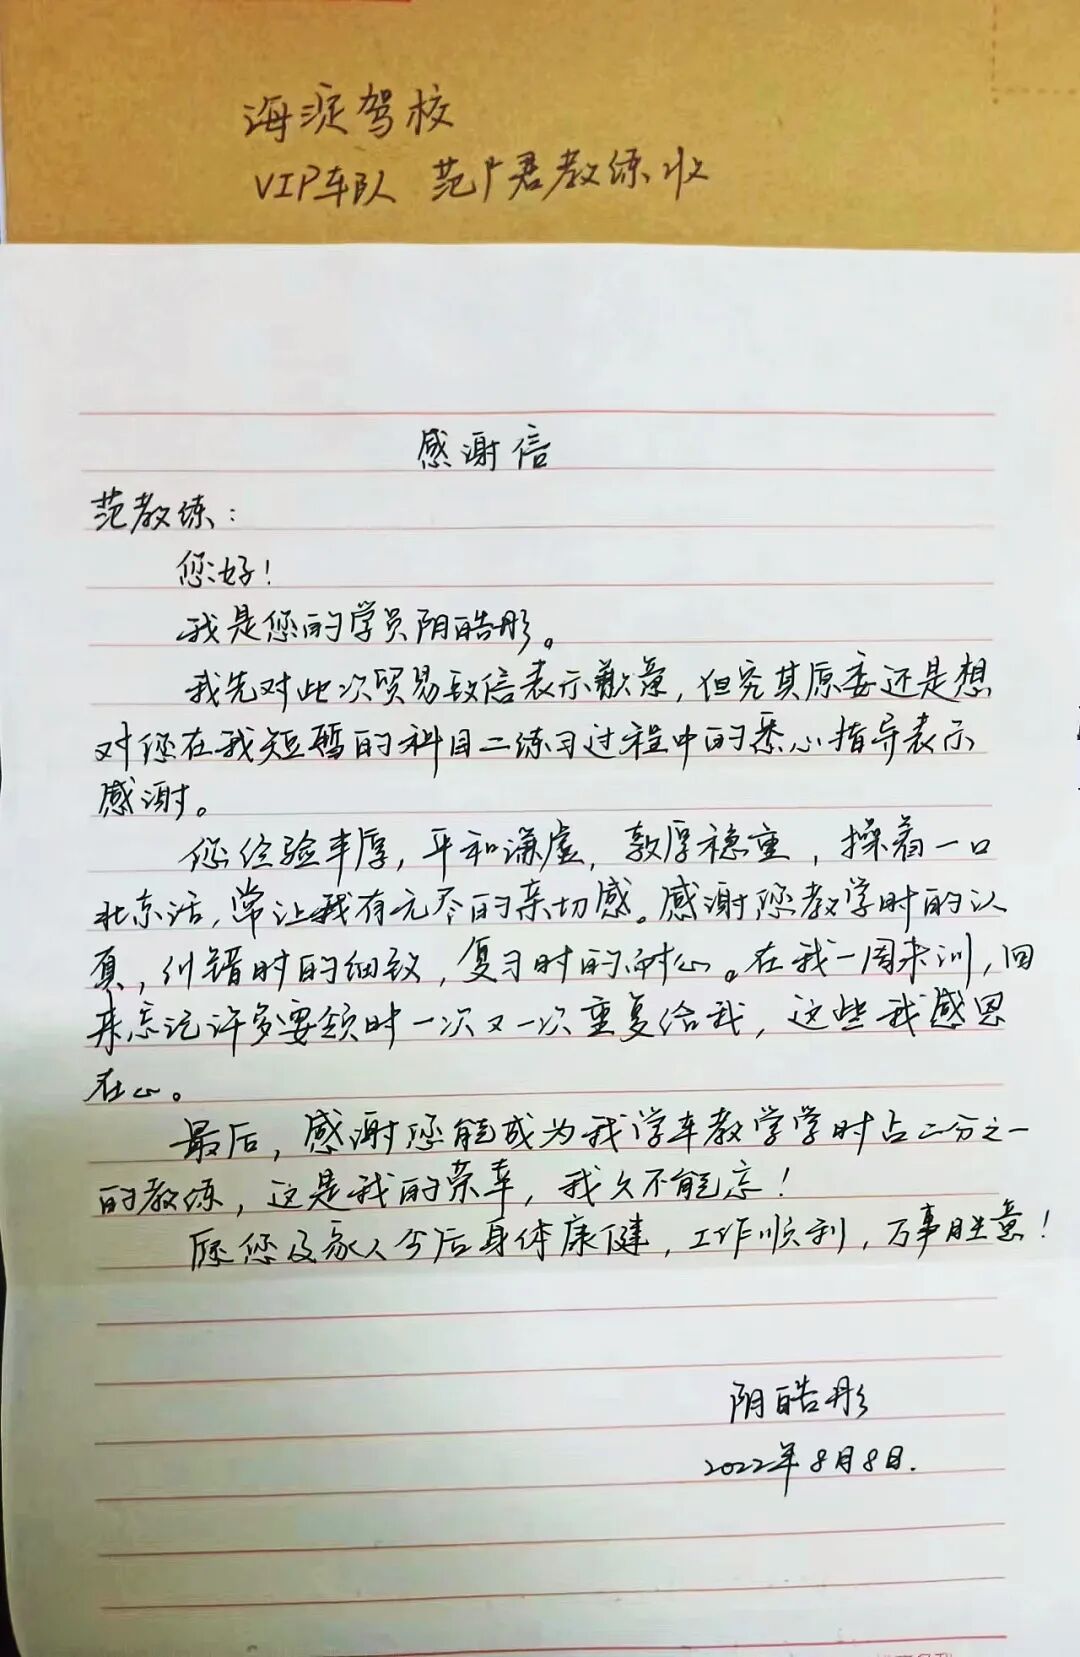 海淀驾校
VIP车队 范广君教练收
感谢信
范教练：
您好！
我是您的学员阴皓彤。
我先对此次贸易致信表示歉意，但究其原委还是想
对您在我短暂的科目二练习过程中的悉心指导表示
感谢。
您经验丰厚，平和谦虚，敦厚稳重，操着一口
北京话，常让我有无尽的亲切感。感谢您教学时的认
真，纠错时的细致，复习时的耐心。在我一周未训，回
来忘记许多要领时一次又一次重复给我，这些我感恩
在心。
最后，感谢您能成为我学车教学学时占二分之一
的教练，这是我的荣幸，我久不能忘！
愿您及家人今后身体康健，工作顺利，万事胜意！
阴皓彤
2022年8月8日.